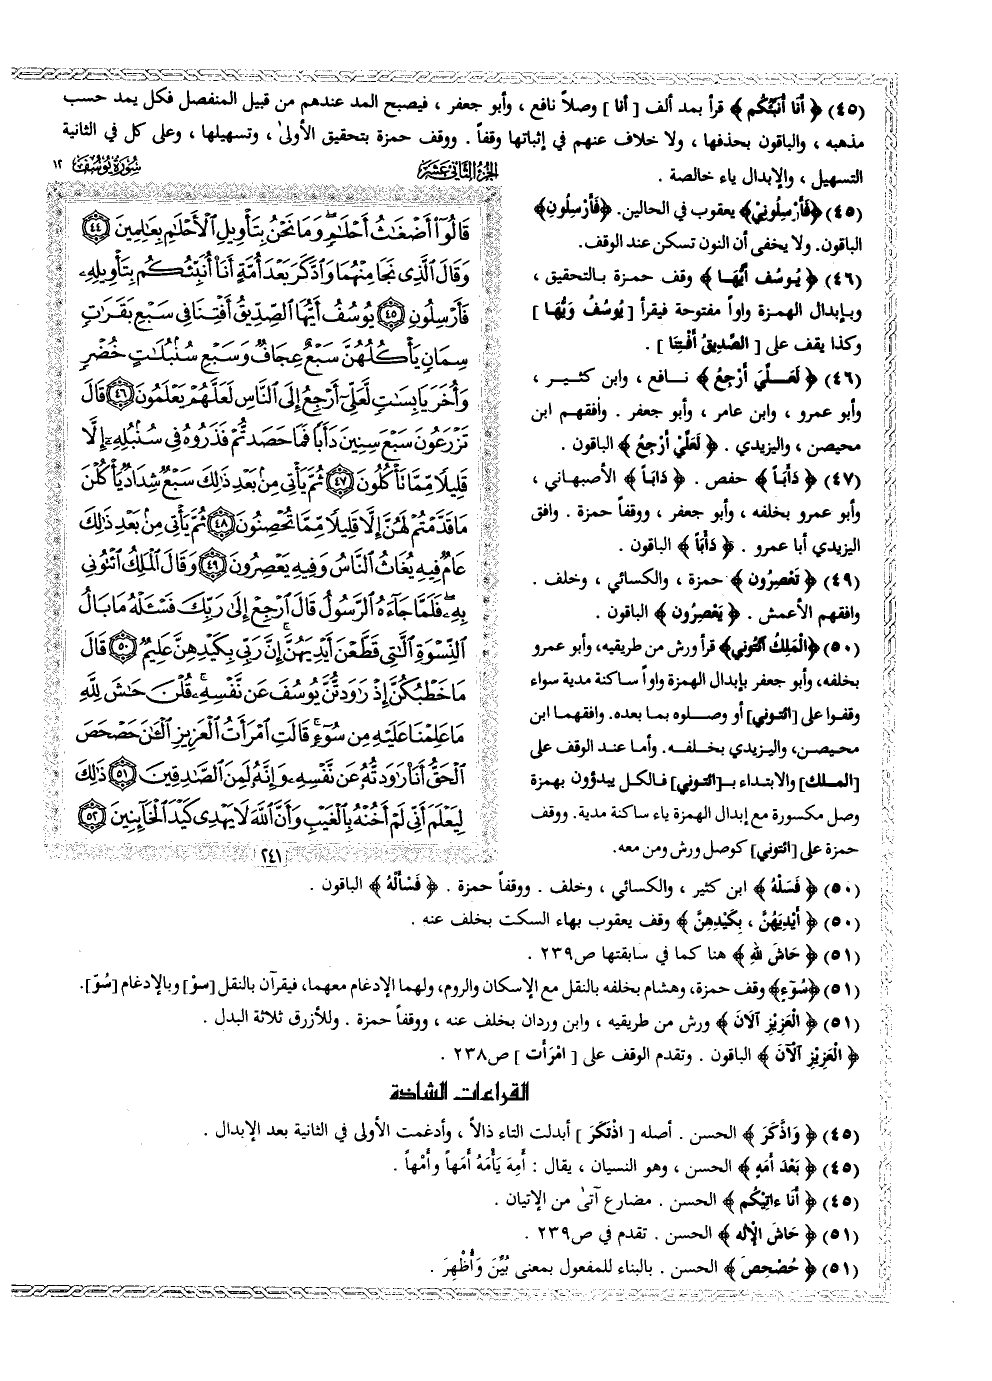 (٤٥) ﴿ أَنَا أُنَبِّئُكُم ﴾ قرأ بمد ألف [ أنا ] وصلاً نافع ، وأبو جعفر ، فيصبح المد عندهم من قبيل المنفصل فكل يمد حسب
مذهبه ، والباقون بحذفها ، ولا خلاف عنهم في إثباتها وقفاً . ووقف حمزة بتحقيق الأولى ، وتسهيلها ، وعلى كل في الثانية
التسهيل ، والإبدال ياء خالصة .
(٤٥) ﴿فَأَرْسِلُونِيْ﴾ يعقوب في الحالين. ﴿فَأَرْسِلُونِ﴾
الباقون. ولا يخفى أن النون تسكن عند الوقف.
(٤٦) ﴿ يُوسُف أَيُّهَا ﴾ وقف حمزة بالتحقيق ،
وبإبدال الهمزة واواً مفتوحة فيقرأ [ يُوسُفُ وَيُّهَا ]
وكذا يقف على [ الصِّدِّيقُ أَفْتِنَا ] .
(٤٦) ﴿ لَعَلِّيَ أَرْجِعُ ﴾ نافع ، وابن كثير ،
وأبو عمرو ، وابن عامر ، وأبو جعفر . وافقهم ابن
محيصن ، واليزيدي . ﴿ لَعَلِّيْ أَرْجِعُ ﴾ الباقون .
(٤٧) ﴿ دَأَبَاً ﴾ حفص . ﴿ دَابَاً ﴾ الأصبهاني ،
وأبو عمرو بخلفه ، وأبو جعفر ، ووقفاً حمزة . وافق
اليزيدي أبا عمرو . ﴿ دَأْبَاً ﴾ الباقون .
(٤٩) ﴿ تَعْصِرُون ﴾ حمزة ، والكسائي ، وخلف .
وافقهم الأعمش . ﴿ يَعْصِرُون ﴾ الباقون .
(٥٠) ﴿الْمَلِكُ ائْتُونِي﴾ قرأ ورش من طريقيه، وأبو عمرو
بخلفه، وأبو جعفر بإبدال الهمزة واواً ساكنة مدية سواء
وقفوا على [ائتوني] أو وصلوه بما بعده. وافقهما ابن
محيصن، واليزيدي بخلفه. وأما عند الوقف على
[الملك] والابتداء بـ[ائتوني] فالكل يبدؤون بهمزة
وصل مكسورة مع إبدال الهمزة ياء ساكنة مدية. ووقف
حمزة على [ائتوني] كوصل ورش ومن معه.
الجزء الثاني عشر
سورة يوسف ١٢
قَالُوٓا۟ أَضْغَٰثُ أَحْلَٰمٍ وَمَا نَحْنُ بِتَأْوِيلِ ٱلْأَحْلَٰمِ بِعَٰلِمِينَ ٤٤
وَقَالَ ٱلَّذِى نَجَا مِنْهُمَا وَٱدَّكَرَ بَعْدَ أُمَّةٍ أَنَا۠ أُنَبِّئُكُم بِتَأْوِيلِهِۦ
فَأَرْسِلُونِ ٤٥ يُوسُفُ أَيُّهَا ٱلصِّدِّيقُ أَفْتِنَا فِى سَبْعِ بَقَرَٰتٍ
سِمَانٍ يَأْكُلُهُنَّ سَبْعٌ عِجَافٌ وَسَبْعِ سُنۢبُلَٰتٍ خُضْرٍ
وَأُخَرَ يَابِسَٰتٍ لَّعَلِّىٓ أَرْجِعُ إِلَى ٱلنَّاسِ لَعَلَّهُمْ يَعْلَمُونَ ٤٦ قَالَ
تَزْرَعُونَ سَبْعَ سِنِينَ دَأَبًا فَمَا حَصَدتُّمْ فَذَرُوهُ فِى سُنۢبُلِهِۦٓ إِلَّا
قَلِيلًا مِّمَّا تَأْكُلُونَ ٤٧ ثُمَّ يَأْتِى مِنۢ بَعْدِ ذَٰلِكَ سَبْعٌ شِدَادٌ يَأْكُلْنَ
مَا قَدَّمْتُمْ لَهُنَّ إِلَّا قَلِيلًا مِّمَّا تُحْصِنُونَ ٤٨ ثُمَّ يَأْتِى مِنۢ بَعْدِ ذَٰلِكَ
عَامٌ فِيهِ يُغَاثُ ٱلنَّاسُ وَفِيهِ يَعْصِرُونَ ٤٩ وَقَالَ ٱلْمَلِكُ ٱئْتُونِى
بِهِۦ فَلَمَّا جَآءَهُ ٱلرَّسُولُ قَالَ ٱرْجِعْ إِلَىٰ رَبِّكَ فَسْـَٔلْهُ مَا بَالُ
ٱلنِّسْوَةِ ٱلَّٰتِى قَطَّعْنَ أَيْدِيَهُنَّ إِنَّ رَبِّى بِكَيْدِهِنَّ عَلِيمٌ ٥٠ قَالَ
مَا خَطْبُكُنَّ إِذْ رَٰوَدتُّنَّ يُوسُفَ عَن نَّفْسِهِۦ قُلْنَ حَٰشَ لِلَّهِ
مَا عَلِمْنَا عَلَيْهِ مِن سُوٓءٍ قَالَتِ ٱمْرَأَتُ ٱلْعَزِيزِ ٱلْـَٰٔنَ حَصْحَصَ
ٱلْحَقُّ أَنَا۠ رَٰوَدتُّهُ عَن نَّفْسِهِۦ وَإِنَّهُۥ لَمِنَ ٱلصَّٰدِقِينَ ٥١ ذَٰلِكَ
لِيَعْلَمَ أَنِّى لَمْ أَخُنْهُ بِٱلْغَيْبِ وَأَنَّ ٱللَّهَ لَا يَهْدِى كَيْدَ ٱلْخَآئِنِينَ ٥٢
٢٤١
(٥٠) ﴿ فَسَلْهُ ﴾ ابن كثير ، والكسائي ، وخلف . ووقفاً حمزة . ﴿ فَسْأَلْهُ ﴾ الباقون .
(٥٠) ﴿ أَيْدِيَهُنَّ ، بِكَيْدِهِنَّ ﴾ وقف يعقوب بهاء السكت بخلف عنه .
(٥١) ﴿ حَاشَ لِلَّهِ ﴾ هنا كما في سابقتها ص٢٣٩ .
(٥١) ﴿سُوٓءٍ﴾ وقف حمزة، وهشام بخلفه بالنقل مع الإسكان والروم، ولهما الإدغام معهما، فيقرآن بالنقل [سوْ] وبالإدغام [سُوّ].
(٥١) ﴿ الْعَزِيْزِ آلَانَ ﴾ ورش من طريقيه ، وابن وردان بخلف عنه ، ووقفاً حمزة . وللأزرق ثلاثة البدل .
﴿ الْعَزِيْزِ آلْآنَ ﴾ الباقون . وتقدم الوقف على [ امْرَأَت ] ص٢٣٨ .
القراءات الشاذة
(٤٥) ﴿ وَاذَّكَرَ ﴾ الحسن . أصله [ اذْتَكَرَ ] أبدلت التاء ذالاً ، وأدغمت الأولى في الثانية بعد الإبدال .
(٤٥) ﴿ بَعْدَ أَمَهٍ ﴾ الحسن ، وهو النسيان ، يقال : أَمِهَ يَأْمَهُ أَمَهاً وأَمْهاً .
(٤٥) ﴿ أَنَا ءاتِيْكُم ﴾ الحسن . مضارع آتى من الإتيان .
(٥١) ﴿ حَاشَ الْإلَه ﴾ الحسن . تقدم في ص٢٣٩ .
(٥١) ﴿ حُصْحِصَ ﴾ الحسن . بالبناء للمفعول بمعنى بُيِّنَ وَأُظْهِرَ .